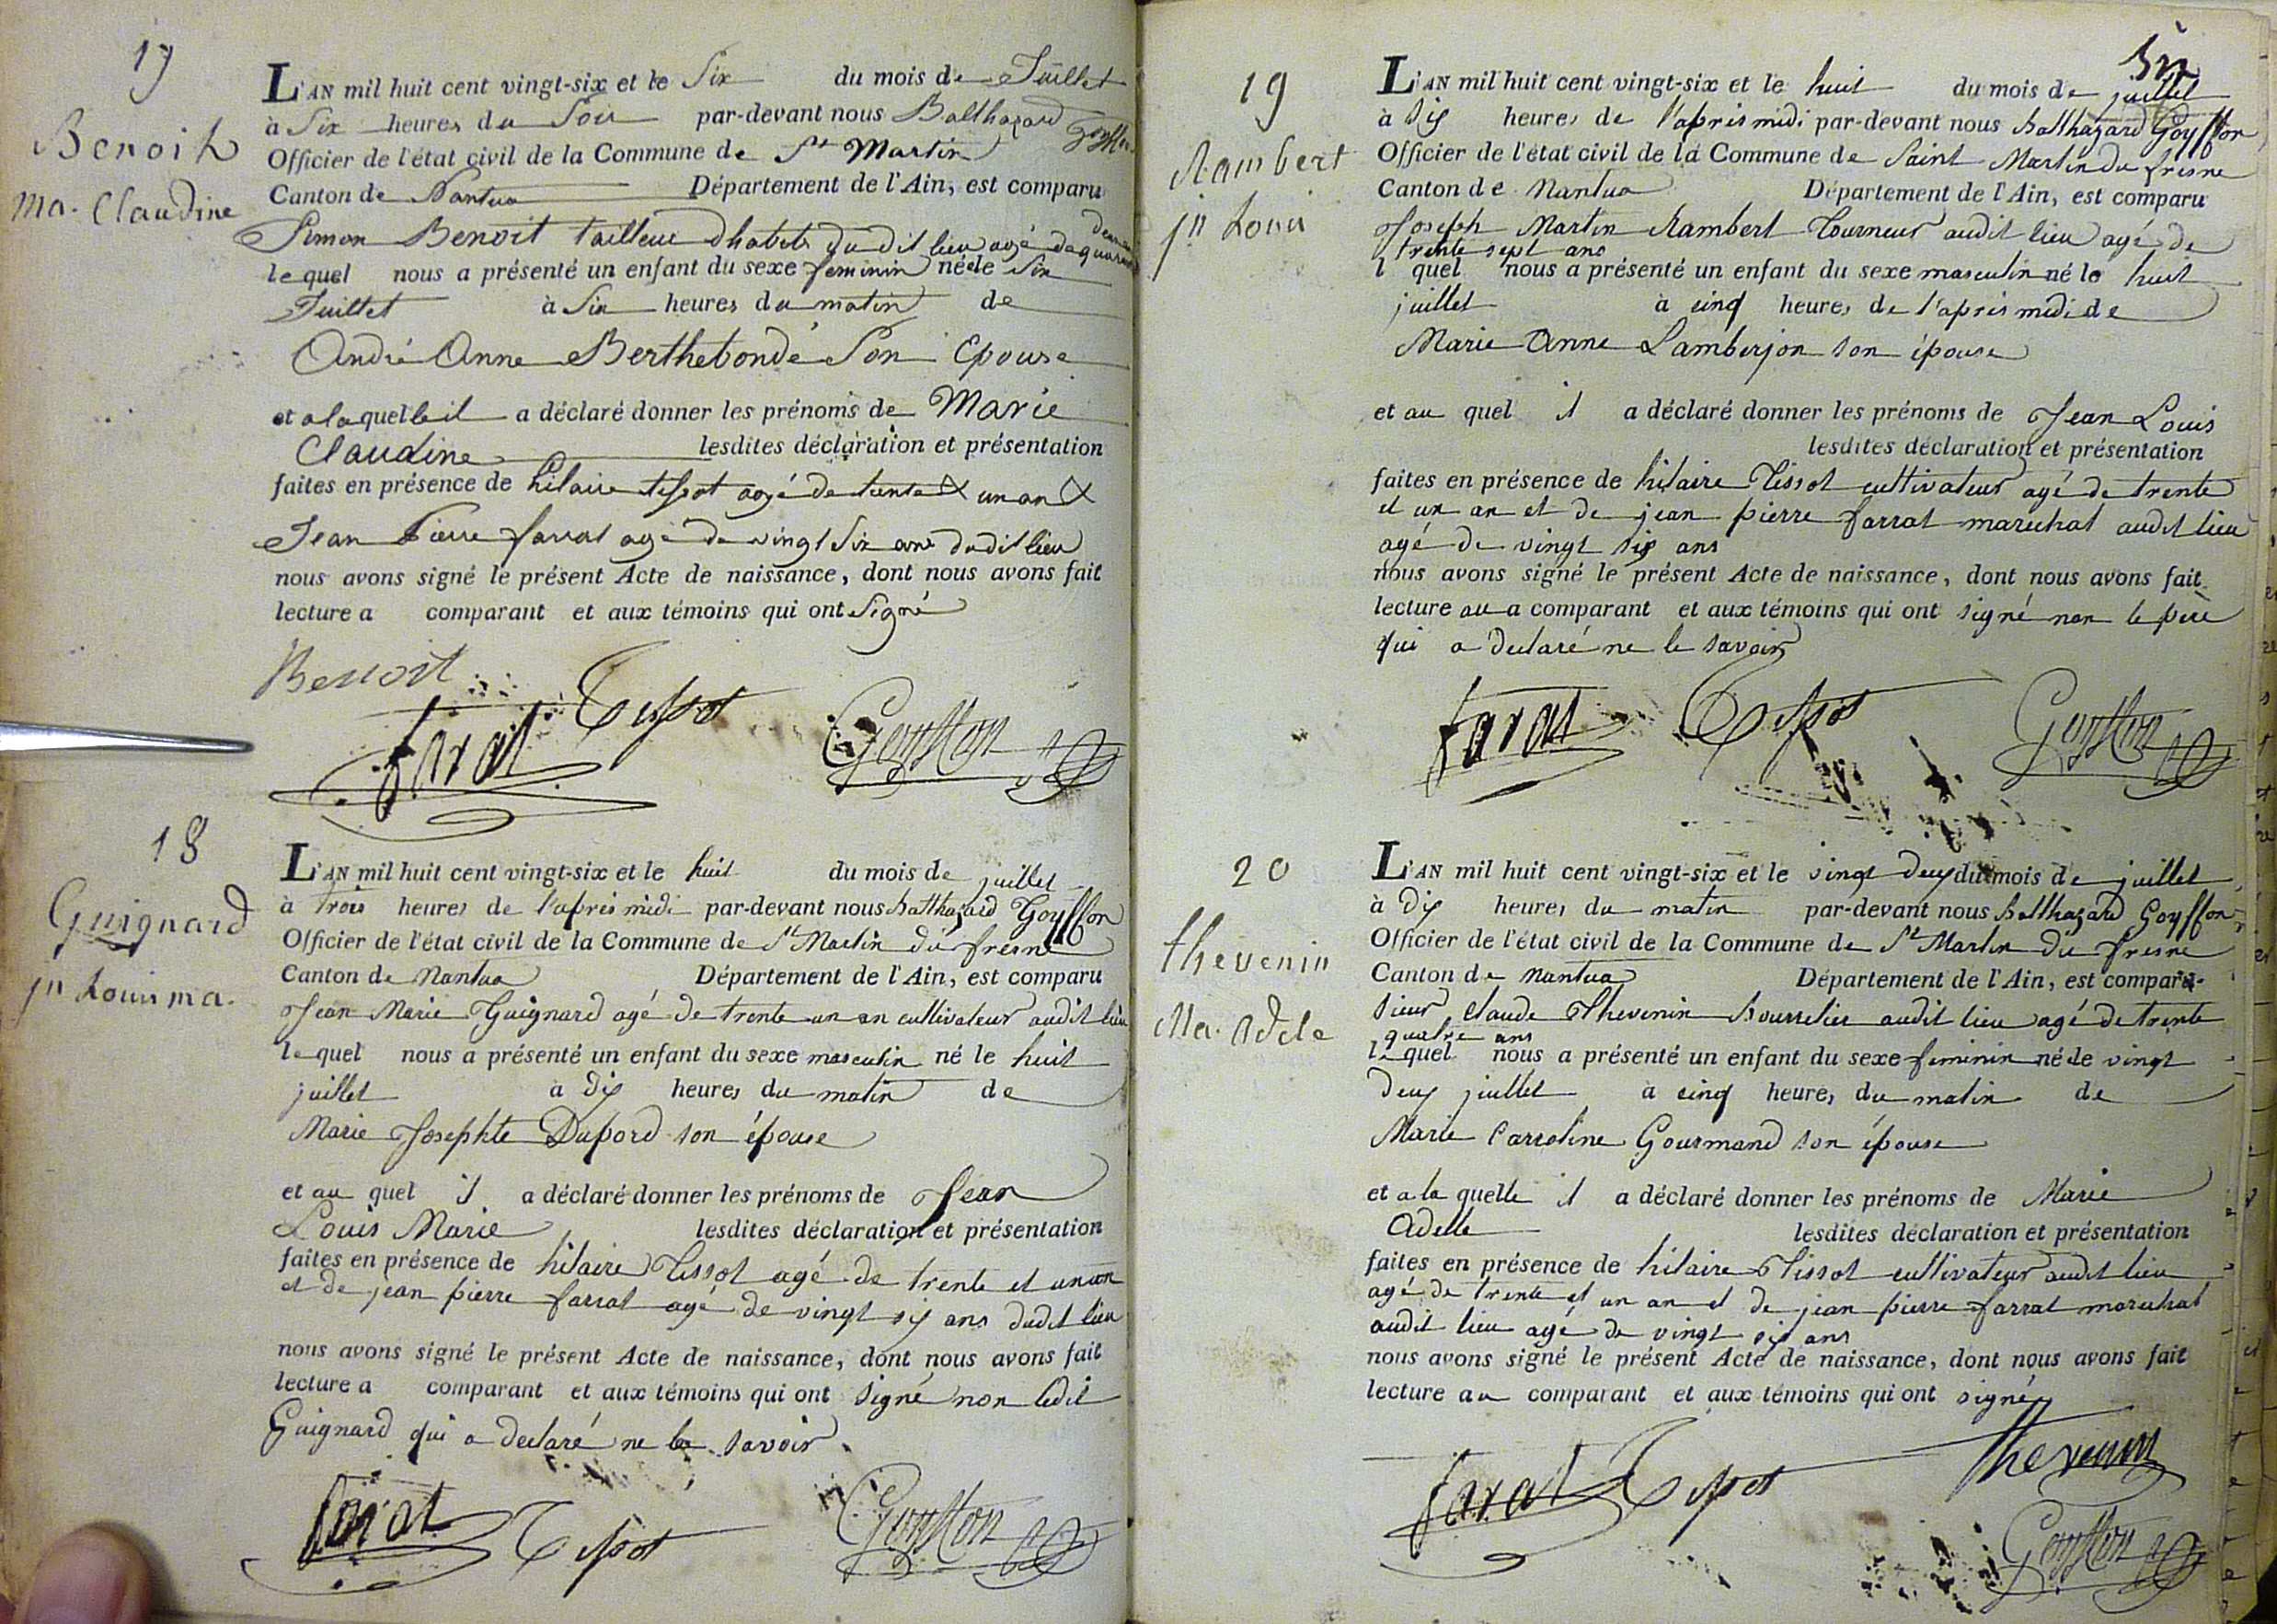 17
Benoit
ma. Claudine
L'AN mil huit cent vingt-six et le Six du mois de Juillet
à Six heures du Soir par-devant nous Balthazard Goyffon
Officier de l'état civil de la Commune de St Martin
Canton de Nantua Département de l'Ain, est comparu
Simon Benoit tailleur dhabits dudit lieu agé de quarante
lequel nous a présenté un enfant du sexe feminin né le Six
Juillet à Six heures du matin de
André Anne Berthebonde Son Epouse
et a laquelle il a déclaré donner les prénoms de Marie
Claudine lesdites déclaration et présentation
faites en présence de hilaire tissot agé de trente & un an &
Jean Pierre farrat agé de vingt Six ans dudit lieu
nous avons signé le présent Acte de naissance, dont nous avons fait
lecture a comparant et aux témoins qui ont Signé
Benoit
farat Tissot Goyffon
18
Guignard
jn Louis ma.
L'AN mil huit cent vingt-six et le huit du mois de juillet
à trois heures de l'après midi par-devant nous balthazard Goyffon
Officier de l'état civil de la Commune de St Martin du fresne
Canton de Nantua Département de l'Ain, est comparu
Jean Marie Guignard agé de trente un an cultivateur audit lieu
lequel nous a présenté un enfant du sexe masculin né le huit
juillet à dix heures du matin de
Marie Josephte Dupord son épouse
et au quel il a déclaré donner les prénoms de Jean
Louis Marie lesdites déclaration et présentation
faites en présence de hilaire Tissot agé de trente et un an
et de jean pierre farrat agé de vingt six ans dudit lieu
nous avons signé le présent Acte de naissance, dont nous avons fait
lecture a comparant et aux témoins qui ont signé non ledit
Guignard qui a declaré ne le savoir
farat Tissot Goyffon
19
Rambert
jn Louis
L'AN mil huit cent vingt-six et le huit du mois de juillet
à six heures de l'après midi par-devant nous balthazard Goyffon
Officier de l'état civil de la Commune de Saint Martin du fresne
Canton de Nantua Département de l'Ain, est comparu
Joseph Martin Rambert Tourneur audit lieu agé de
trente sept ans
lquel nous a présenté un enfant du sexe masculin né le huit
juillet à cinq heures de l'après midi de
Marie Anne Lamberjon son épouse
et au quel il a déclaré donner les prénoms de Jean Louis
lesdites déclaration et présentation
faites en présence de hilaire Tissot cultivateur agé de trente
et un an et de jean pierre farrat marechal audit lieu
agé de vingt six ans
nous avons signé le présent Acte de naissance, dont nous avons fait
lecture au a comparant et aux témoins qui ont signé non le père
qui a declaré ne le savoir
farat Tissot Goyffon
20
thevenin
Ma. Adele
L'AN mil huit cent vingt-six et le vingt deux du mois de juillet
à dix heures du matin par-devant nous balthazard Goyffon
Officier de l'état civil de la Commune de St Martin du fresne
Canton de Nantua Département de l'Ain, est comparu
Sieur Claude Thevenin bourrelier audit lieu agé de trente
quatre ans
lequel nous a présenté un enfant du sexe feminin né le vingt
deux juillet à cinq heures du matin de
Marie Carroline Gourmand son épouse
et a la quelle il a déclaré donner les prénoms de Marie
Adelle lesdites déclaration et présentation
faites en présence de hilaire Tissot cultivateur audit lieu
agé de trente et un an et de jean pierre farrat marechal
audit lieu agé de vingt six ans
nous avons signé le présent Acte de naissance, dont nous avons fait
lecture au comparant et aux témoins qui ont signé
farat Tissot thevenin
Goyffon